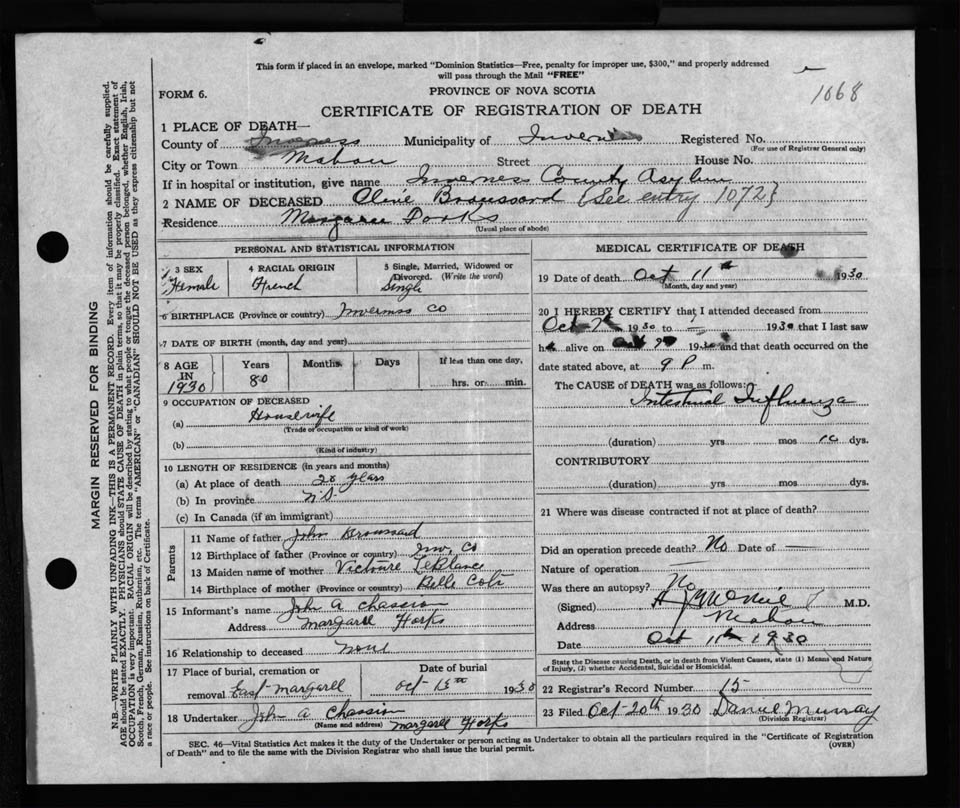 This form if placed in an envelope, marked "Dominion Statistics—Free, penalty for improper use, $300," and properly addressed
will pass through the Mail "FREE"
1068
FORM 6.
PROVINCE OF NOVA SCOTIA
CERTIFICATE OF REGISTRATION OF DEATH
1 PLACE OF DEATH—
County of Inverness Municipality of Inverness Registered No.
(For use of Registrar General only)
City or Town Mabou Street House No.
If in hospital or institution, give name Inverness County Asylum
2 NAME OF DECEASED Olive Broussard (See entry 1072)
Residence Margaree
(Usual place of abode)
PERSONAL AND STATISTICAL INFORMATION
3 SEX Female
4 RACIAL ORIGIN French
5 Single, Married, Widowed or Divorced. (Write the word) Single
6 BIRTHPLACE (Province or country) Inverness Co
7 DATE OF BIRTH (month, day and year)
8 AGE IN 1930 Years 80 Months Days If less than one day, hrs. or min.
9 OCCUPATION OF DECEASED
(a) Housewife
(Trade or occupation or kind of work)
(b)
(Kind of industry)
10 LENGTH OF RESIDENCE (in years and months)
(a) At place of death 20 years
(b) In province N.S.
(c) In Canada (if an immigrant)
Parents
11 Name of father John Broussard
12 Birthplace of father (Province or country) Inv. Co
13 Maiden name of mother Victoire LeBlanc
14 Birthplace of mother (Province or country) Belle Cote
15 Informant's name John A Chassion
Address Margaree Forks
16 Relationship to deceased none
17 Place of burial, cremation or removal East Margaree
Date of burial Oct 13th 1930
18 Undertaker John A Chassion Margaree Forks
(Name and address)
MEDICAL CERTIFICATE OF DEATH
19 Date of death Oct 11th 1930
(Month, day and year)
20 I HEREBY CERTIFY that I attended deceased from
Oct 1930 to — 1930 that I last saw
h alive on and that death occurred on the
date stated above, at 9 P m.
The CAUSE of DEATH was as follows:
Intestinal Influenza
(duration) yrs mos 10 dys.
CONTRIBUTORY
(duration) yrs mos dys.
21 Where was disease contracted if not at place of death?
Did an operation precede death? No Date of —
Nature of operation —
Was there an autopsy? No
(Signed) McNeil M.D.
Address Mabou
Date Oct 11th 1930
State the Disease causing Death, or in death from Violent Causes, state (1) Means and Nature
of Injury, (2) whether Accidental, Suicidal or Homicidal.
22 Registrar's Record Number 15
23 Filed Oct 20th 1930 Daniel Murray
(Division Registrar)
SEC. 46—Vital Statistics Act makes it the duty of the Undertaker or person acting as Undertaker to obtain all the particulars required in the "Certificate of Registration
of Death" and to file the same with the Division Registrar who shall issue the burial permit.
(OVER)
MARGIN RESERVED FOR BINDING
N.B.—WRITE PLAINLY WITH UNFADING INK—THIS IS A PERMANENT RECORD. Every item of information should be carefully supplied.
AGE should be stated EXACTLY. PHYSICIANS should STATE CAUSE OF DEATH in plain terms, so that it may be properly classified. Exact statement of
OCCUPATION is very important. RACIAL ORIGIN will be described by stating to what people or tongue the deceased person belonged, whether English, Irish,
Scotch, French, German, Russian, Ruthenian, etc. The terms "AMERICAN" or "CANADIAN" SHOULD NOT BE USED as they express citizenship but not
a race or people. See instructions on back of Certificate.